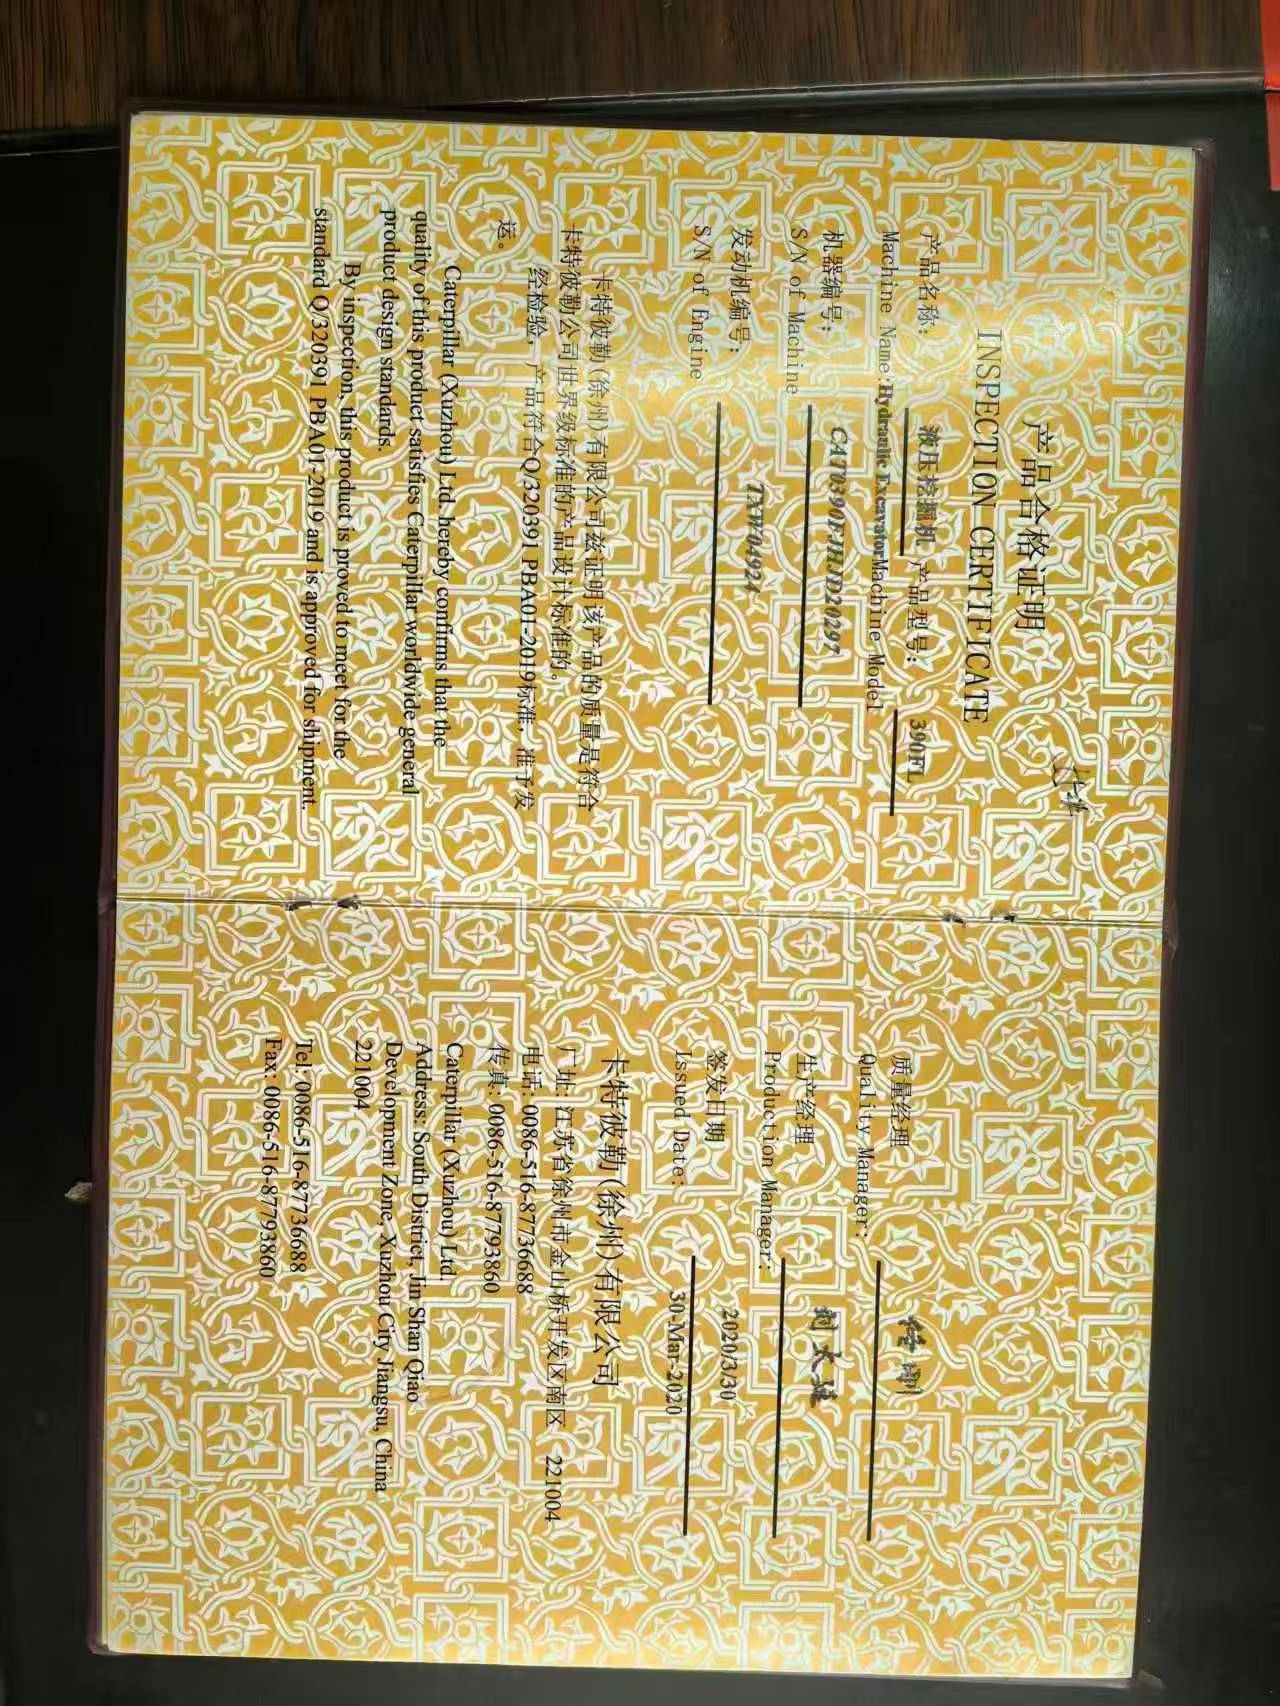 产品合格证明
INSPECTION CERTIFICATE
产品名称: 液压挖掘机 产品型号:
Machine Name: Hydraulic Excavator Machine Model 390FL
机器编号: CAT0390FJHJD20297
S/N of Machine
发动机编号: TXW04924
S/N of Engine
卡特彼勒(徐州)有限公司兹证明该产品的质量是符合
卡特彼勒公司世界级标准的产品设计标准的。
经检验,产品符合Q/320391 PBA01-2019标准,准予发
运。
Caterpillar (Xuzhou) Ltd. hereby confirms that the
quality of this product satisfies Caterpillar worldwide general
product design standards.
By inspection, this product is proved to meet for the
standard Q/320391 PBA01-2019 and is approved for shipment.
质量经理
Quality Manager:
生产经理
Production Manager:
签发日期 2020/3/30
Issued Date: 30-Mar-2020
卡特彼勒(徐州)有限公司
厂址: 江苏省徐州市金山桥开发区南区 221004
电话: 0086-516-87736688
传真: 0086-516-87793860
Caterpillar (Xuzhou) Ltd.
Address: South District, Jin Shan Qiao
Development Zone, Xuzhou City Jiangsu, China
221004
Tel: 0086-516-87736688
Fax: 0086-516-87793860